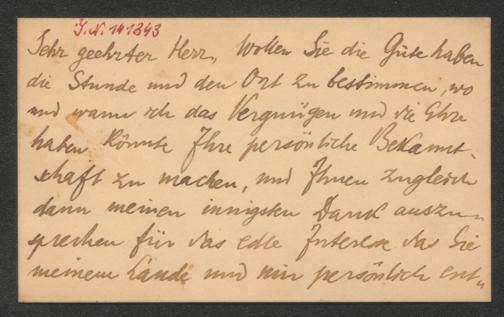 I.N. 141343
Sehr geehrter Herr, Wollen Sie die Güte haben
die Stunde und den Ort zu bestimmen, wo
und wann ich das Vergnügen und die Ehre
haben könnte Ihre persönliche Bekannt-
schaft zu machen, und Ihnen zugleich
dann meinen innigsten Dank auszu-
sprechen für das edle Interesse das Sie
meinem Lande und mir persönlich ent-